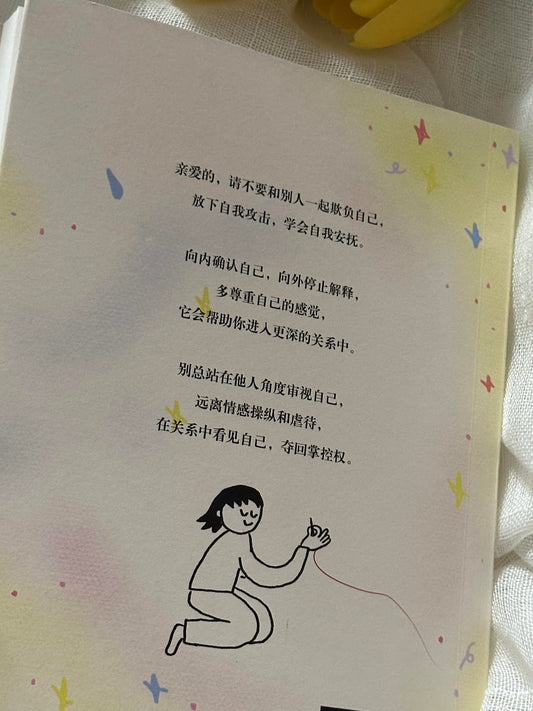 亲爱的，请不要和别人一起欺负自己，
放下自我攻击，学会自我安抚。
向内确认自己，向外停止解释，
多尊重自己的感觉，
它会帮助你进入更深的关系中。
别总站在他人角度审视自己，
远离情感操纵和虐待，
在关系中看见自己，夺回掌控权。